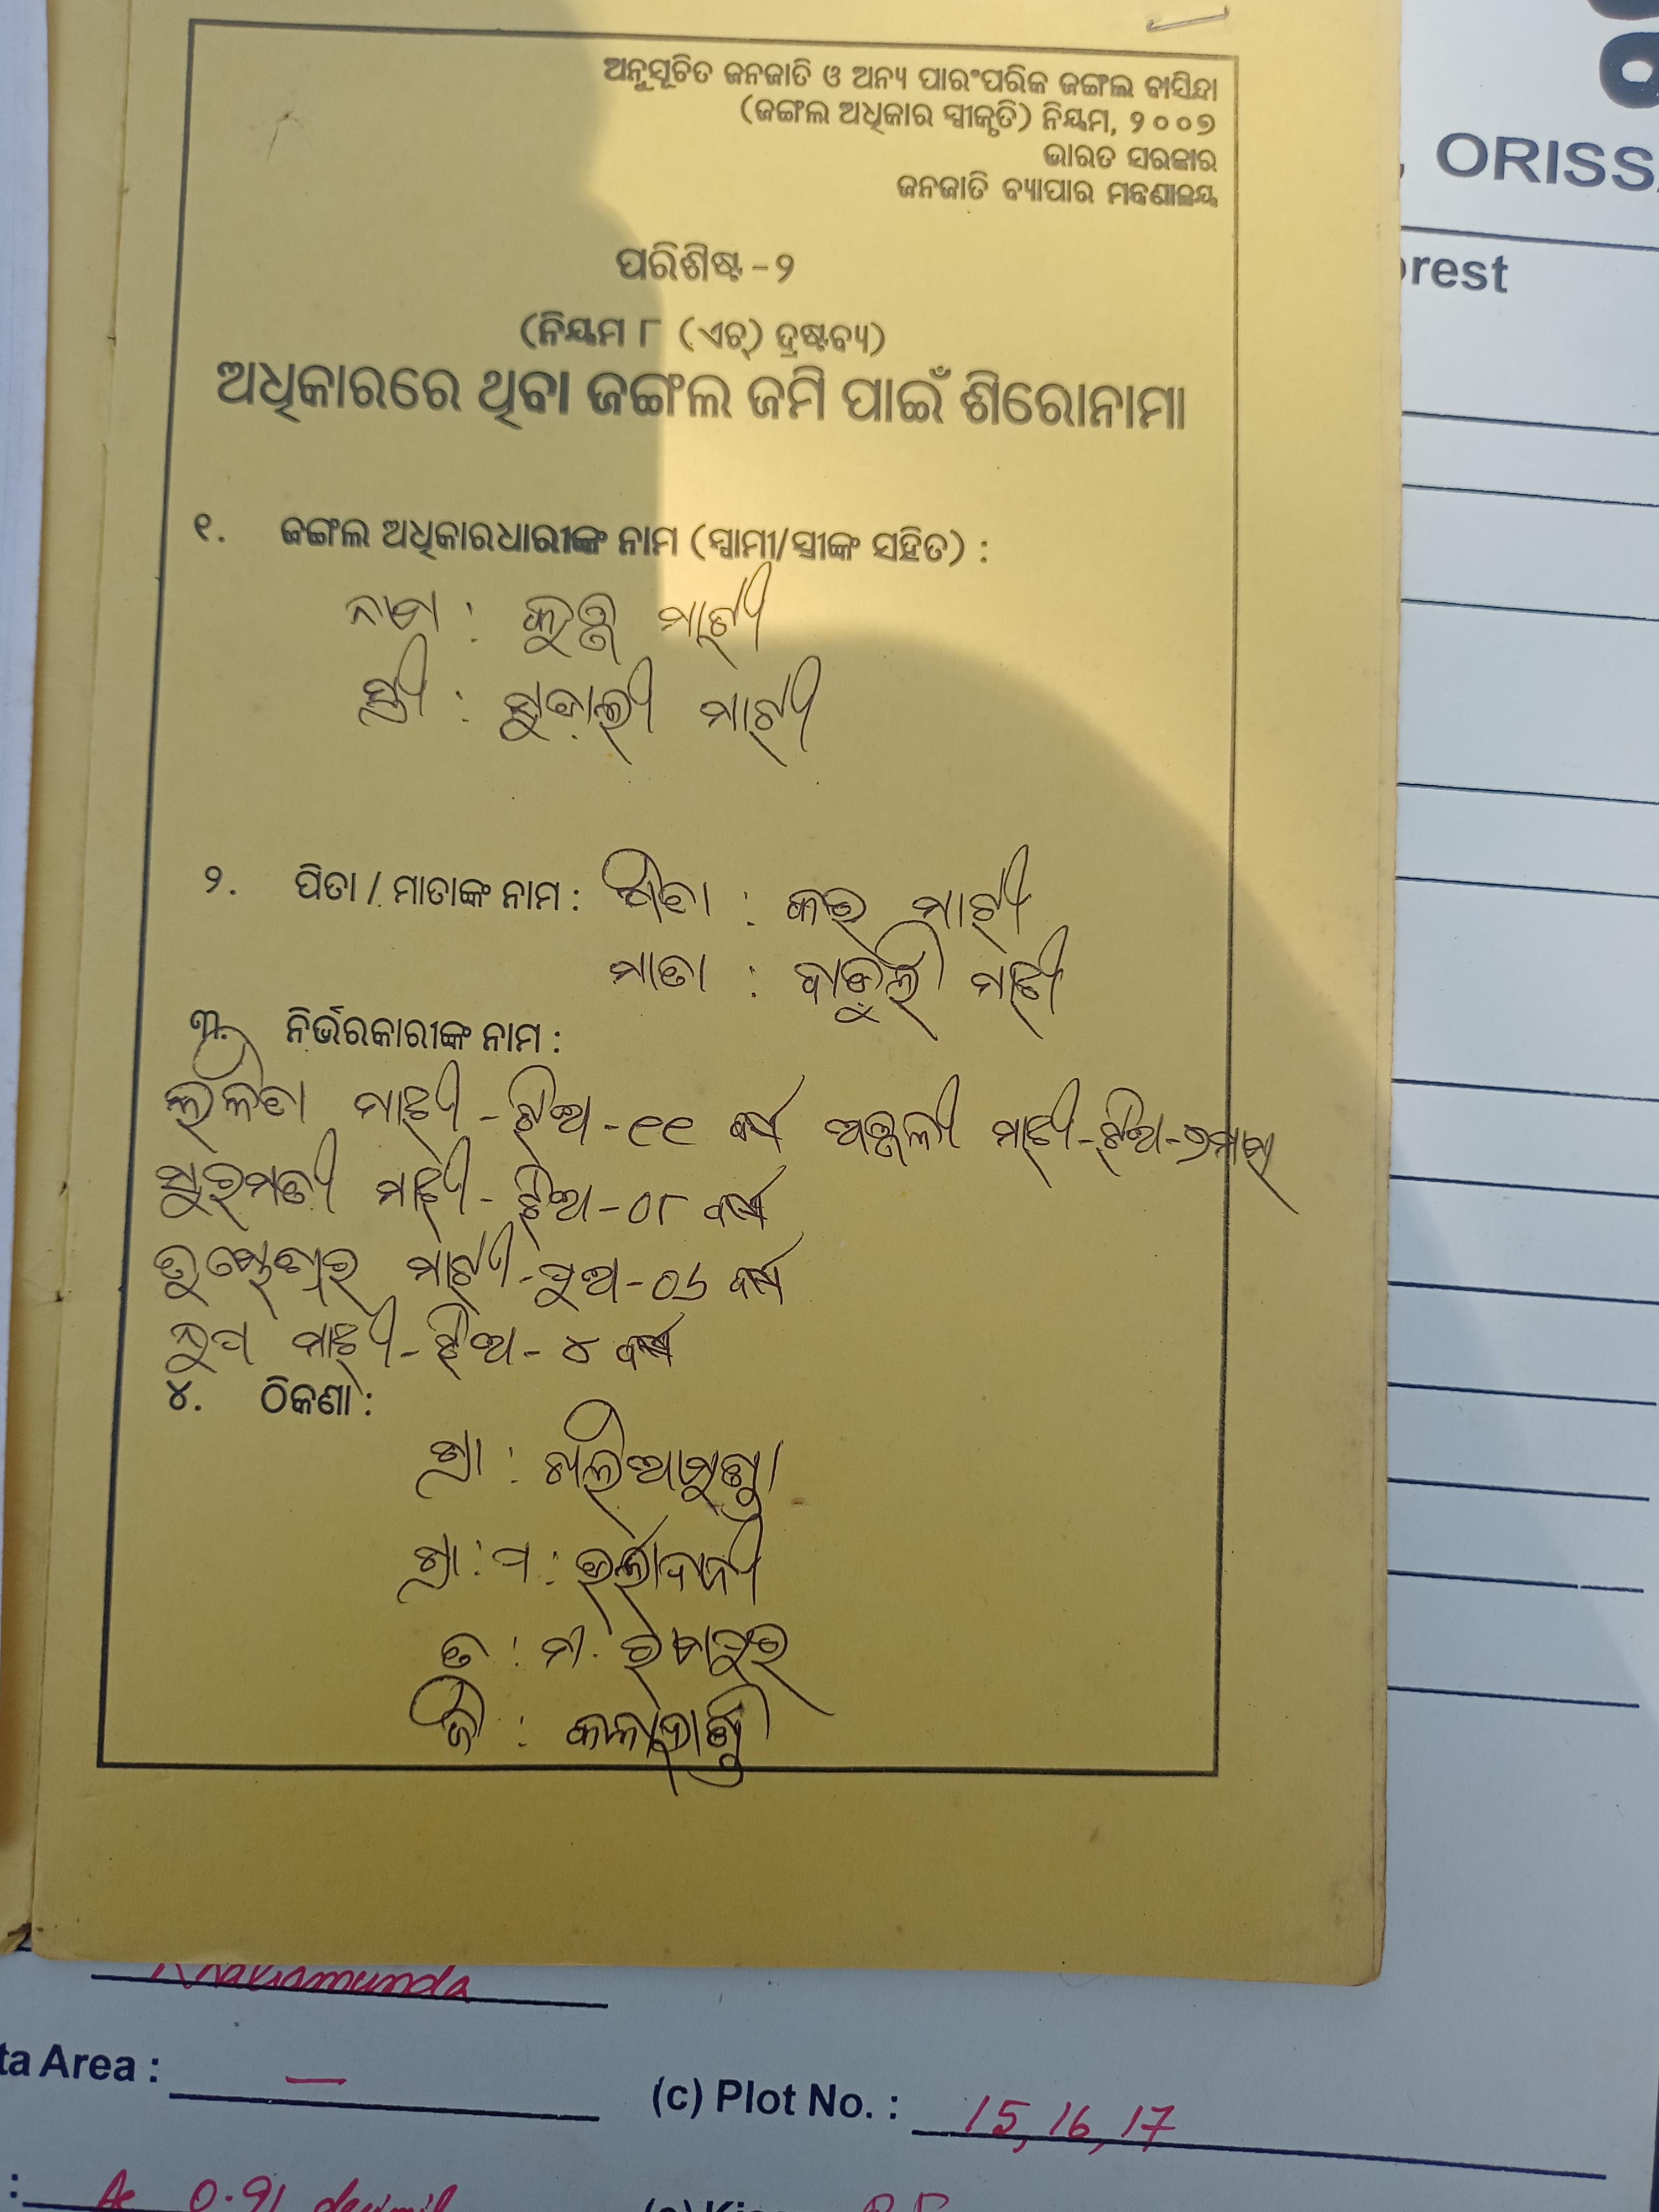 ଅନୁସୂଚିତ ଜନଜାତି ଓ ଅନ୍ୟ ପାରଂପରିକ ଜଙ୍ଗଲ ବାସିନ୍ଦା
(ଜଙ୍ଗଲ ଅଧିକାର ସ୍ୱୀକୃତି) ନିୟମ, ୨୦୦୭
ଭାରତ ସରକାର
ଜନଜାତି ବ୍ୟାପାର ମନ୍ତ୍ରଣାଳୟ
ପରିଶିଷ୍ଟ - ୨
(ନିୟମ ୮ (ଏଚ୍) ଦ୍ରଷ୍ଟବ୍ୟ)
ଅଧିକାରରେ ଥିବା ଜଙ୍ଗଲ ଜମି ପାଇଁ ଶିରୋନାମା
୧. ଜଙ୍ଗଲ ଅଧିକାରଧାରୀଙ୍କ ନାମ (ସ୍ୱାମୀ/ସ୍ତ୍ରୀଙ୍କ ସହିତ) :
ନାମ : ମାଝୀ
ସ୍ତ୍ରୀ : ମାଝୀ
୨. ପିତା / ମାତାଙ୍କ ନାମ : ପିତା : ମାଝୀ
ମାତା : ମାଝୀ
୩. ନିର୍ଭରକାରୀଙ୍କ ନାମ :
ଲଳିତା ମାଝୀ - ଝିଅ - ୧୧ ବର୍ଷ ଅଞ୍ଜଳୀ ମାଝୀ - ଝିଅ - ୬ମାସ
ସୁରମତୀ ମାଝୀ - ଝିଅ - ୦୮ ବର୍ଷ
ମାଝୀ - ପୁଅ - ୦୬ ବର୍ଷ
ମାଝୀ - ଝିଅ - ୪ ବର୍ଷ
୪. ଠିକଣା :
ଗ୍ରା : ଖଲିଆମୁଣ୍ଡା
ଗ୍ରା : ପ :
ତ : ମ. ରାମପୁର
ଜି : କଳାହାଣ୍ଡି
, ORISSA
orest
ta Area : —
(c) Plot No. : 15, 16, 17
: Ac 0.91 decimil